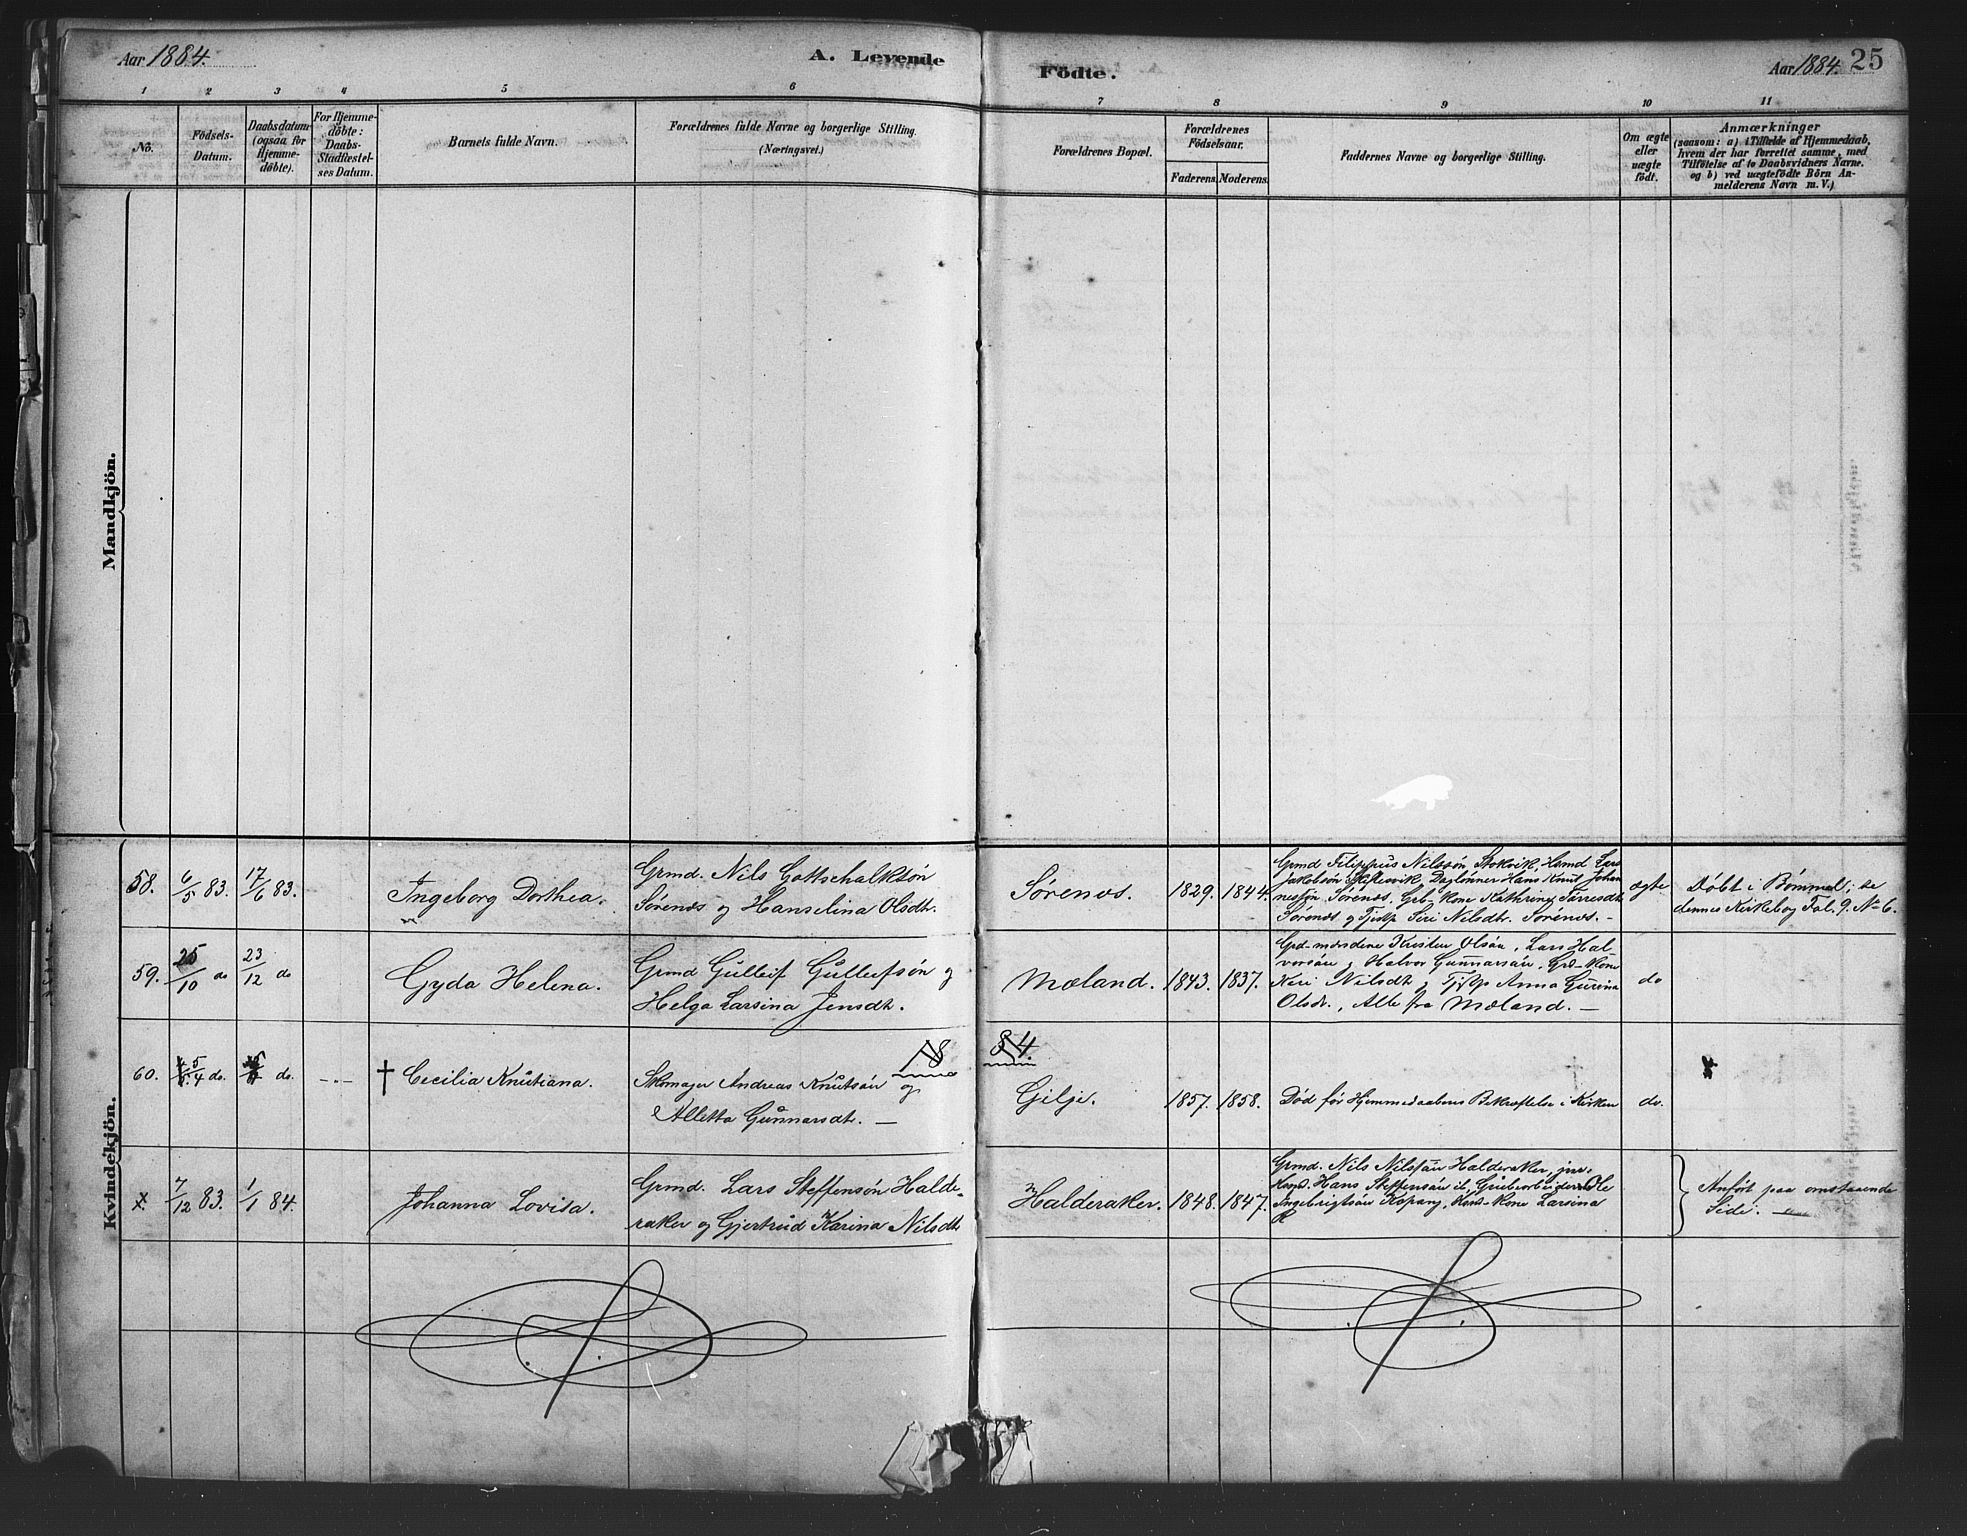 Aar 1884.
A. Levende
Födte.
Aar 1884. 25
1 2 3 4 5 6 7 8 9 10 11
No.
Födsels-
Datum.
Daabsdatum
(ogsaa for
Hjemme-
döbte).
For Hjemme-
döbte:
Daabs-
Stadfæstel-
ses Datum.
Barnets fulde Navn.
Forældrenes fulde Navne og borgerlige Stilling.
(Næringsvei.)
Forældrenes Bopæl.
Forældrenes
Födselsaar.
Faderens. Moderens.
Faddernes Navne og borgerlige Stilling.
Om ægte
eller
uægte
födt.
Anmærkninger
(saasom: a) i Tilfælde af Hjemmedaab,
hvem der har forrettet samme, med
Tilföielse af to Daabsvidners Navne.
og b) ved uægtefödte Börn An-
melderens Navn m. V.)
Mandkjön.
Kvindekjön.
58. 6/5 83. 17/6 83.
Ingeborg Dorthea.
Grmd. Nils Gottschalksön
Sörenæs og Hanselina Olsdt.
Sörenæs. 1829. 1844.
Grmd Filippus Nilssön Stokvik, Hsmd Lars
Jakobsön Daglönner Hans Knut Johan
nesson Sörenæs, Grb-kone Kathrine
Sörenæs og Tjpige Siri Nilsdt. Sörenæs. -
ægte
Döbt i Bömmel; se
dennes Kirkebog Fol. 9. No 6.
59. 25/10 do 23/12 do
Gyda Helena.
Grmd Gulleif Gulleifsön og
Helga Larsina Jensdt.
Mæland. 1843. 1837.
Grd-mændene Kristen Olsön, Lars Hal
vorsön og Halvor Gunnarsön, Grd-kone
Nilsdt og Tjpige Anna Gurina
Olsdt., Alle fra Mæland. —
do
18
84.
60. do. do. -.-
† Cecilia Knutiana.
Skomager Andreas Knutsön og
Alletta Gunnarsdt. —
Gilje. 1857. 1858.
Död för Hjemmedaabens Bekræftelse i Kirken
do.
x. 7/12 83. 1/1 84.
Johanna Lovisa.
Grmd. Lars Steffensön Halde-
raker og Gjertrud Karina Nilsdt
Halderaker. 1848. 1847.
Grmd. Nils Nilssön Halderaker, jnr.
Hans Steffensön ib, Grubearbeider Ole
Ingebrigtsön kone Larsina
Anfört paa omstaaende
Side. —